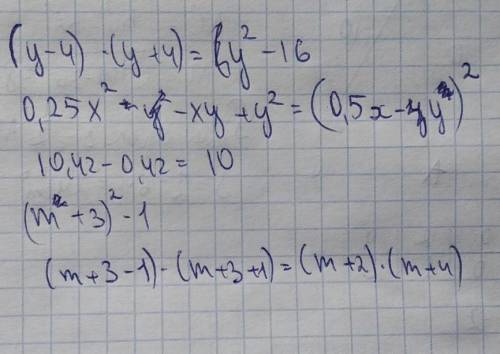 (y-4)·(y+4)=y²-16
0,25x²-xy+y²=(0,5x-y)²
10,42-0,42=10
(m+3)²-1
(m+3-1)·(m+3+1)=(m+2)·(m+4)